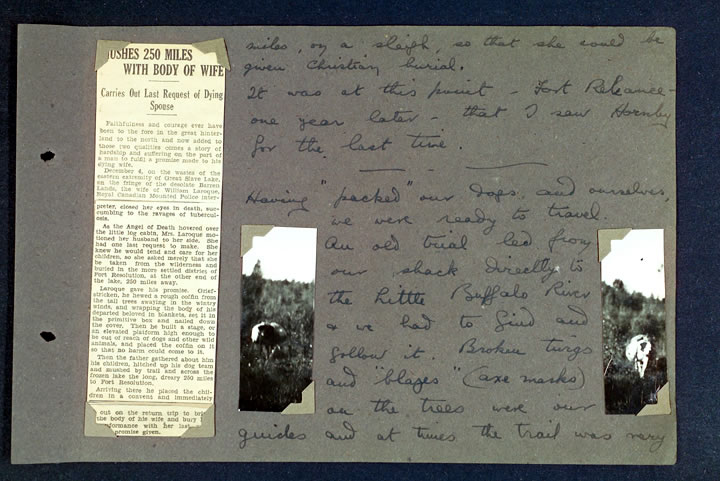 USHES 250 MILES
WITH BODY OF WIFE
Carries Out Last Request of Dying
Spouse
Faithfulness and courage ever have
been to the fore in the great hinter-
land to the north and now added to
those two qualities comes a story of
hardship and suffering on the part of
a man to fulfil a promise made to his
dying wife.
December 6, on the wastes of the
eastern extremity of Great Slave Lake,
on the fringe of the desolate Barren
Lands, the wife of William Laroque,
Royal Canadian Mounted Police inter-
preter, closed her eyes in death, suc-
cumbing to the ravages of tubercul-
osis.
As the Angel of Death hovered over
the little log cabin, Mrs. Laroque mo-
tioned her husband to her side. She
had one last request to make. She
knew he would tend and care for her
children, so she asked merely that she
be taken from the wilderness and
buried in the more settled district of
Fort Resolution, at the other end of
the lake, 250 miles away.
Laroque gave his promise. Grief-
stricken, he hewed a rough coffin from
the tall trees swaying in the wintry
winds, and wrapping the body of his
departed beloved in blankets, set it in
the primitive box and nailed down
the cover. Then he built a stage, or
an elevated platform high enough to
be out of reach of dogs and other wild
animals, and placed the coffin on it
so that no harm could come to it.
Then the father gathered about him
his children, hitched up his dog team
and mushed by trail and across the
frozen lake the long, dreary 250 miles
to Fort Resolution.
Arriving there he placed the chil-
dren in a convent and immediately
out on the return trip to bri
the body of his wife and bury
formance with her last
promise given.
miles, on a sleigh, so that she could be
given Christian burial.
It was at this point - Fort Reliance -
one year later - that I saw Hornby
for the last time
Having "packed" our dogs and ourselves,
we were ready to travel.
An old trial led from
our shack directly to
the Little Buffalo River
& we had to find and
follow it. Broken twigs
and "blazes" (axe marks)
on the trees were our
guides and at times the trail was very